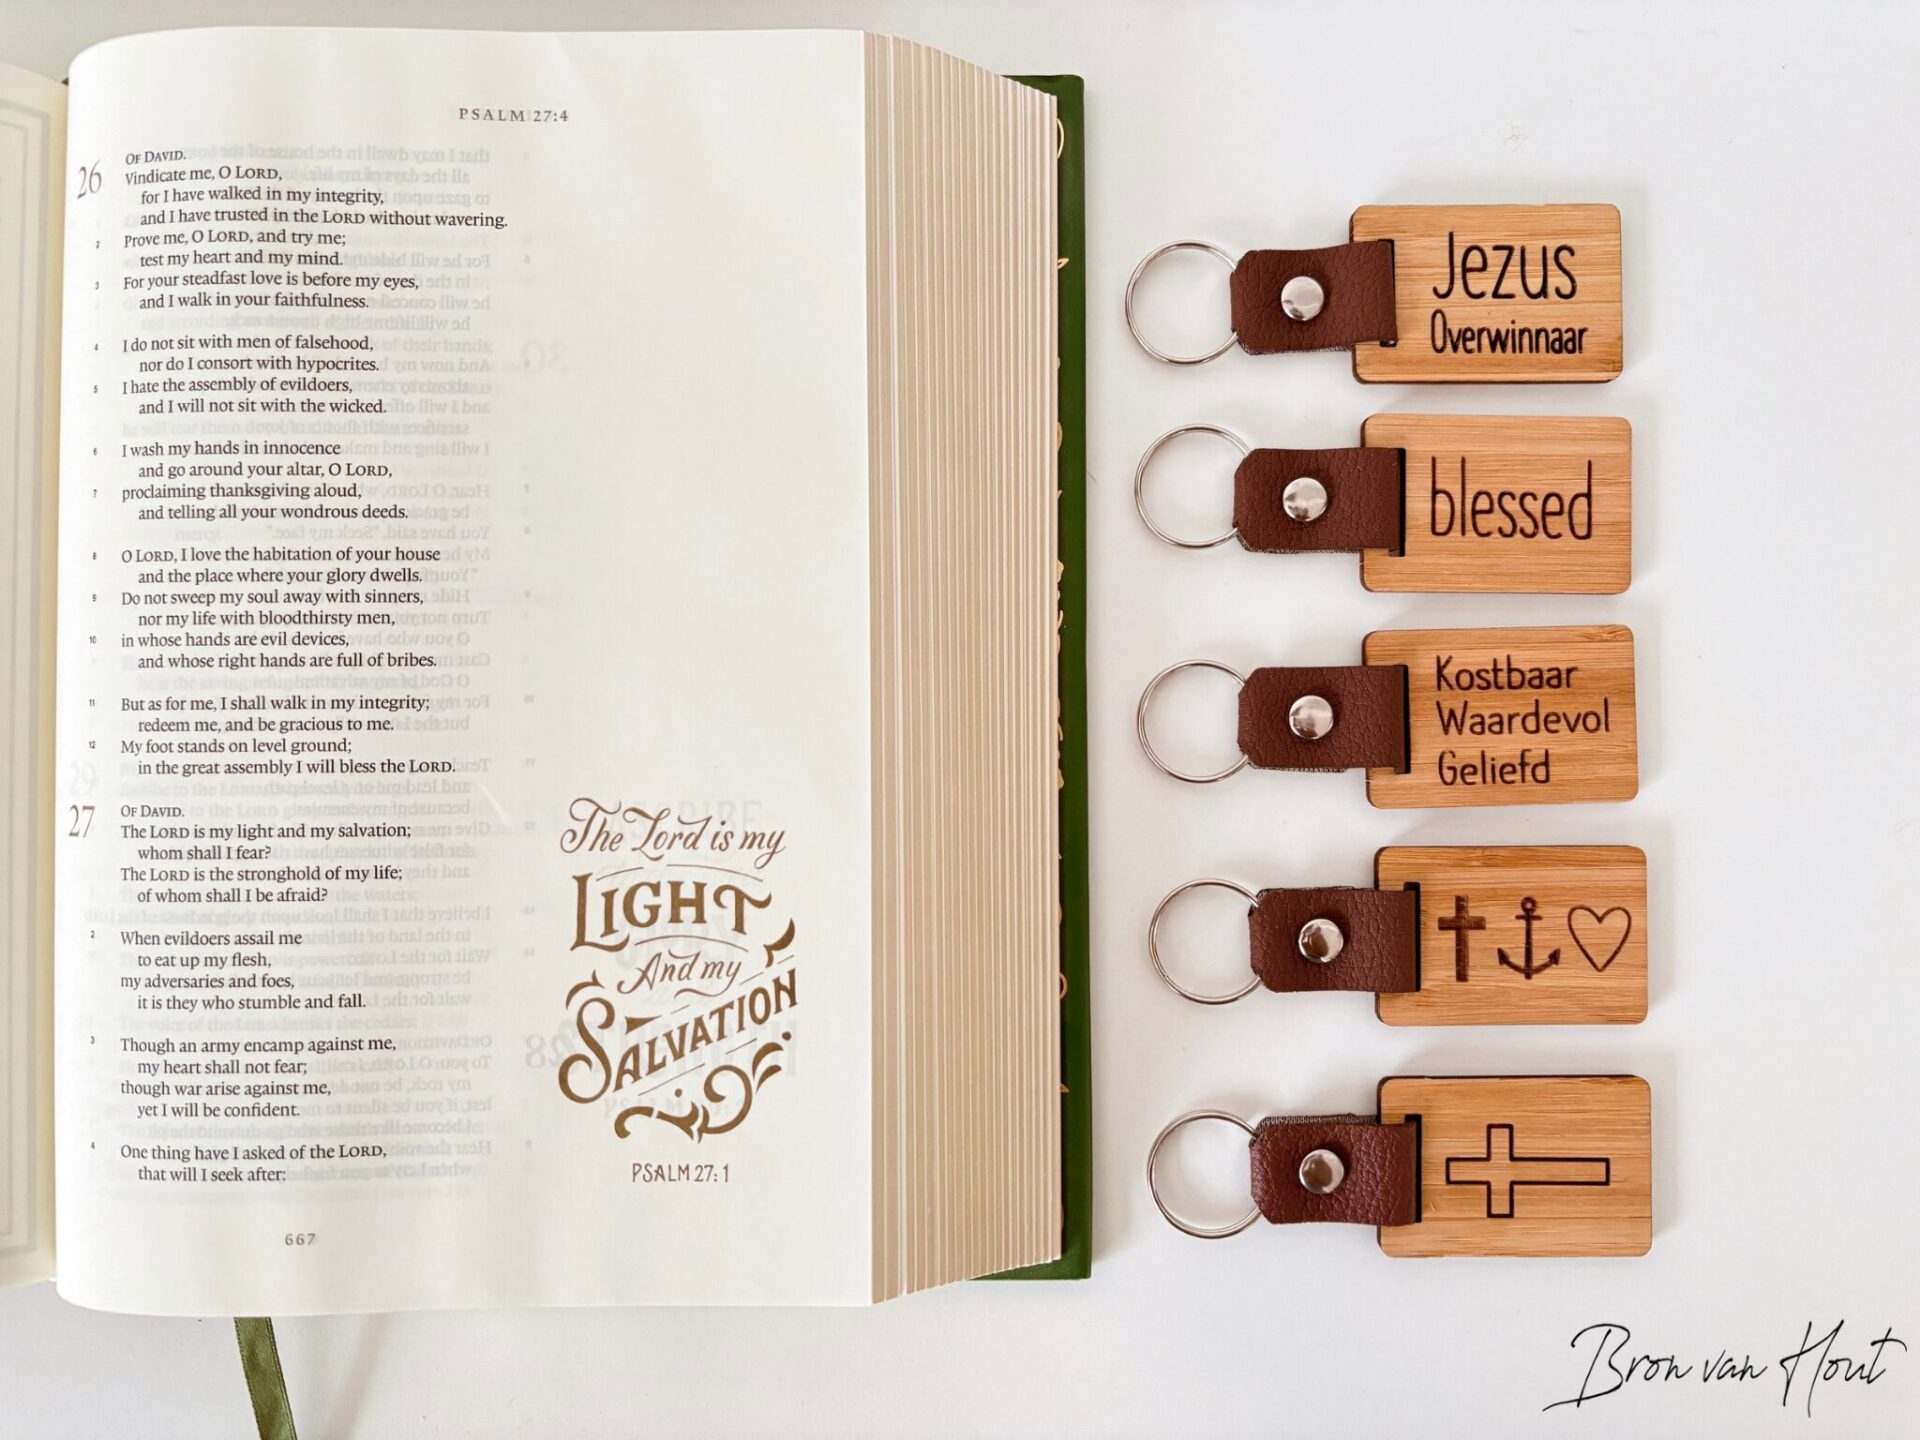 PSALM 27:4
26
OF DAVID.
Vindicate me, O LORD,
for I have walked in my integrity,
and I have trusted in the LORD without wavering.
2 Prove me, O LORD, and try me;
test my heart and my mind.
3 For your steadfast love is before my eyes,
and I walk in your faithfulness.
4 I do not sit with men of falsehood,
nor do I consort with hypocrites.
5 I hate the assembly of evildoers,
and I will not sit with the wicked.
6 I wash my hands in innocence
and go around your altar, O LORD,
7 proclaiming thanksgiving aloud,
and telling all your wondrous deeds.
8 O LORD, I love the habitation of your house
and the place where your glory dwells.
9 Do not sweep my soul away with sinners,
nor my life with bloodthirsty men,
10 in whose hands are evil devices,
and whose right hands are full of bribes.
11 But as for me, I shall walk in my integrity;
redeem me, and be gracious to me.
12 My foot stands on level ground;
in the great assembly I will bless the LORD.
27
OF DAVID.
The LORD is my light and my salvation;
whom shall I fear?
The LORD is the stronghold of my life;
of whom shall I be afraid?
2 When evildoers assail me
to eat up my flesh,
my adversaries and foes,
it is they who stumble and fall.
3 Though an army encamp against me,
my heart shall not fear;
though war arise against me,
yet I will be confident.
4 One thing have I asked of the LORD,
that will I seek after:
667
The Lord is my
LIGHT
And my
SALVATION
PSALM 27:1
Jezus
Overwinnaar
blessed
Kostbaar
Waardevol
Geliefd
Bron van Hout